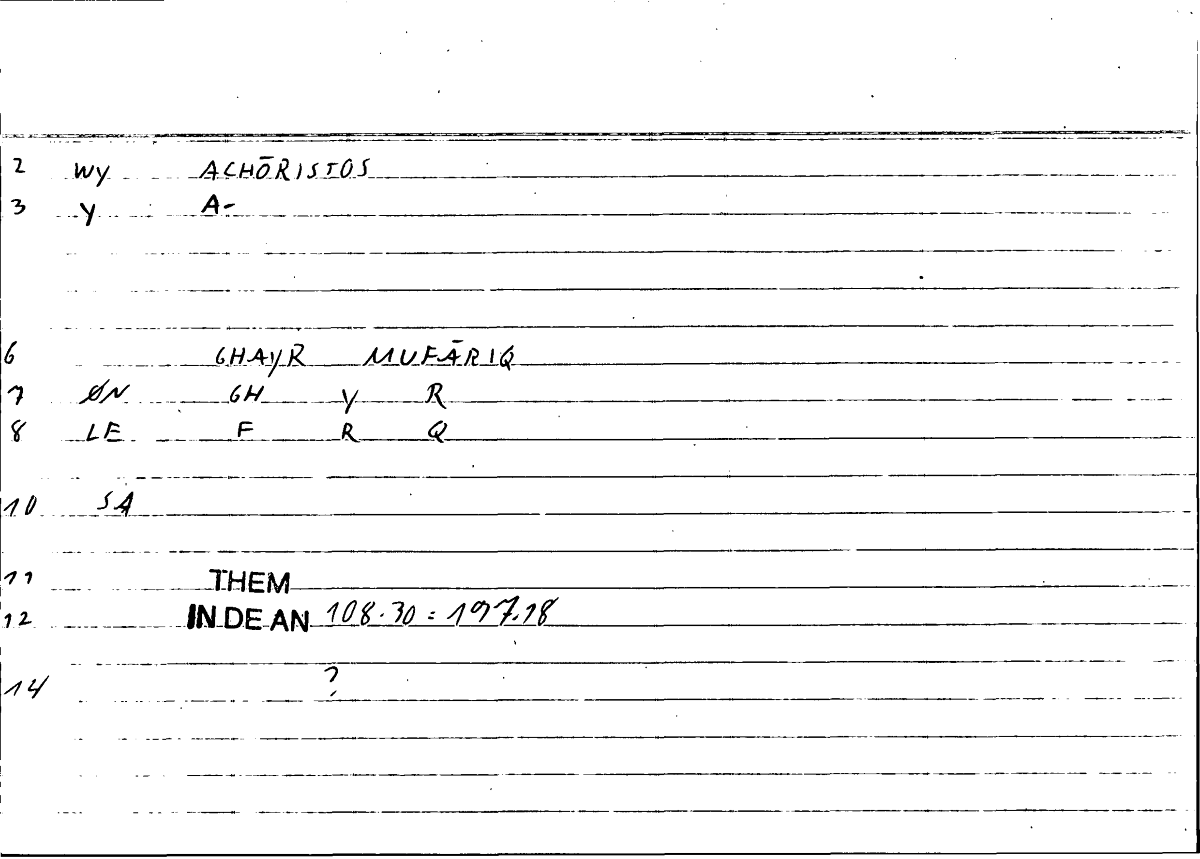 2 WY ACHŌRISTOS
3 Y A-
6 GHAYR MUFĀRIQ
7 ØN GH Y R
8 LE F R Q
10 SA
11 THEM
12 IN DE AN 108.30 = 197.18
14 ?